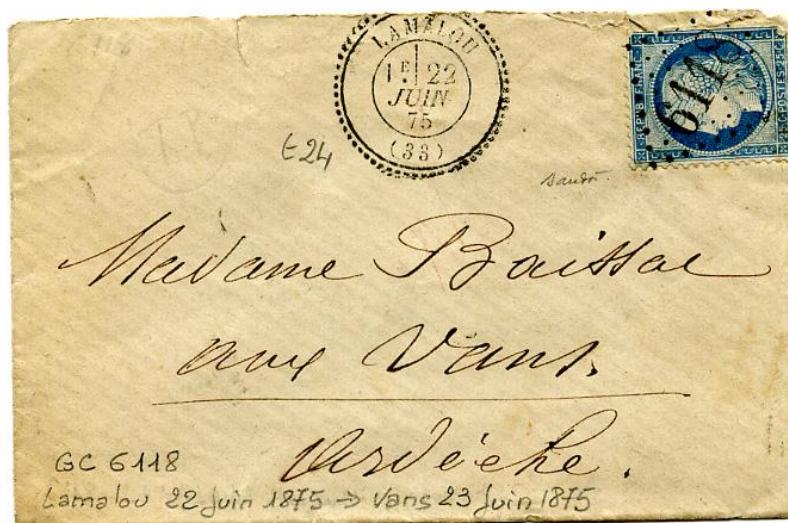 LAMALOU
1E 22
JUIN
75
(33)
6118
REPUB. FRANC.
POSTES
E24
Madame Baissac
aux Vans.
Ardèche.
GC 6118
Lamalou 22 Juin 1875 → Vans 23 Juin 1875